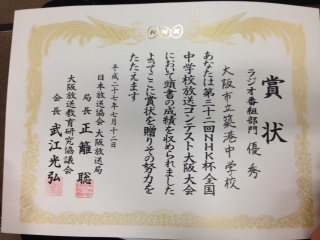 賞状
ラジオ番組部門 優秀
大阪市立築港中学校
あなたは第三十二回NHK杯全国
中学校放送コンテスト大阪大会
において頭書の成績を収められました
よってここに賞状を贈りその努力を
たたえます
平成二十七年七月十二日
日本放送協会 大阪放送局
局長 正籬 聡
大阪放送教育研究協議会
会長 武江光弘